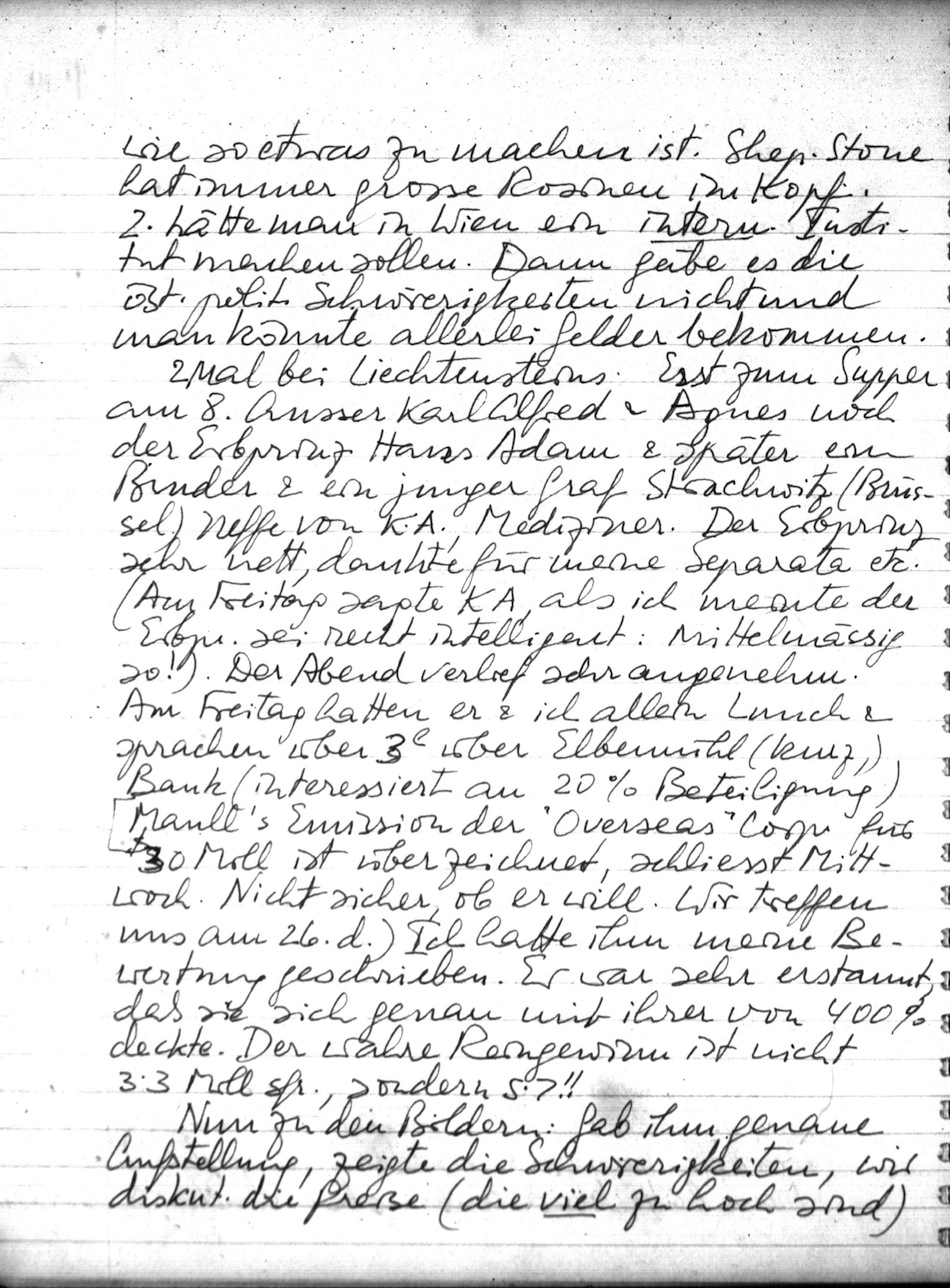 wie so etwas zu machen ist. Shep. Stone
hat immer grosse Rosinen im Kopf.
2. hätte man in Wien ein intern. Insti-
tut machen sollen. Dann gäbe es die
öst. polit. Schwierigkeiten nicht und
man könnte allerlei Gelder bekommen.
2Mal bei Liechtensteins. Erst zum Supper
am 8. Ausser Karl Alfred & Agnes noch
der Erbprinz Hans Adam & später ein
Bruder & ein junger Graf Strachwitz (Brüs-
sel) Neffe von K.A., Mediziner. Der Erbprinz
sehr nett, dankte für meine Separata etc.
(Am Freitag sagte KA, als ich meinte der
Erbpr. sei recht intelligent: Mittelmässig
so!). Der Abend verlief sehr angenehm.
Am Freitag hatten er & ich allein Lunch &
sprachen über 3c über Elbemühl (kurz,)
Bank (interessiert an 20% Beteiligung)
[Mantl's Emission der "Overseas" Corp für
$30 Mill ist überzeichnet, schliesst Mitt-
woch. Nicht sicher, ob er will. Wir treffen
uns am 26. d.) Ich hatte ihm meine Be-
wertung geschrieben. Er war sehr erstaunt,
das sie sich genau mit ihrer von 400%
deckte. Der wahre Reingewinn ist nicht
3.3 Mill sfr., sondern 5.7!!
Nun zu den Bildern: Gab ihm genaue
Aufstellung, zeigte die Schwierigkeiten, wir
diskut. die Preise (die viel zu hoch sind)